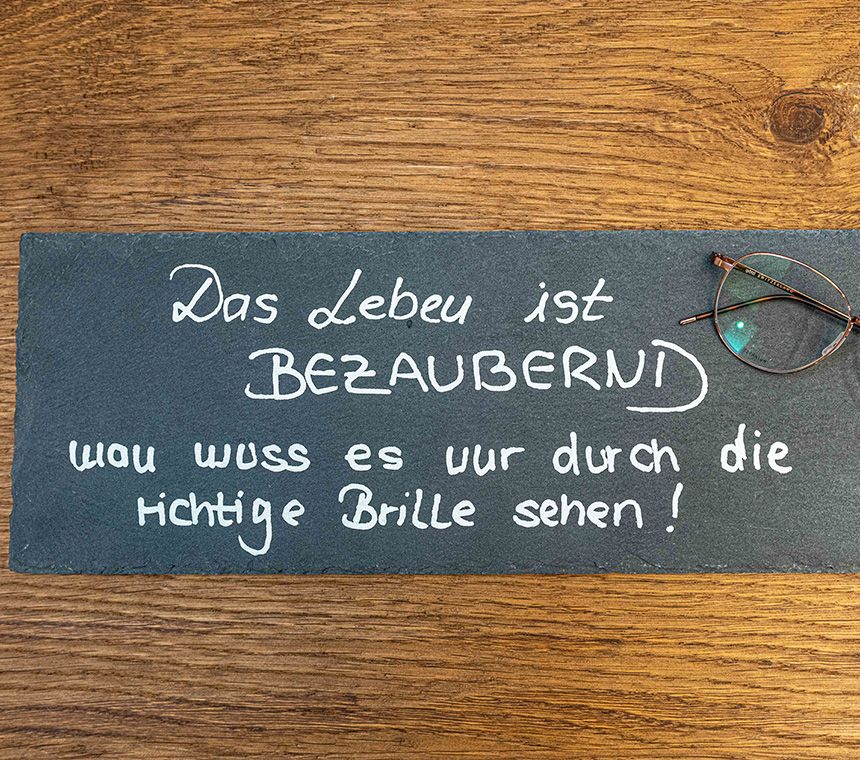 Das Leben ist
BEZAUBERND
man muss es nur durch die
richtige Brille sehen!